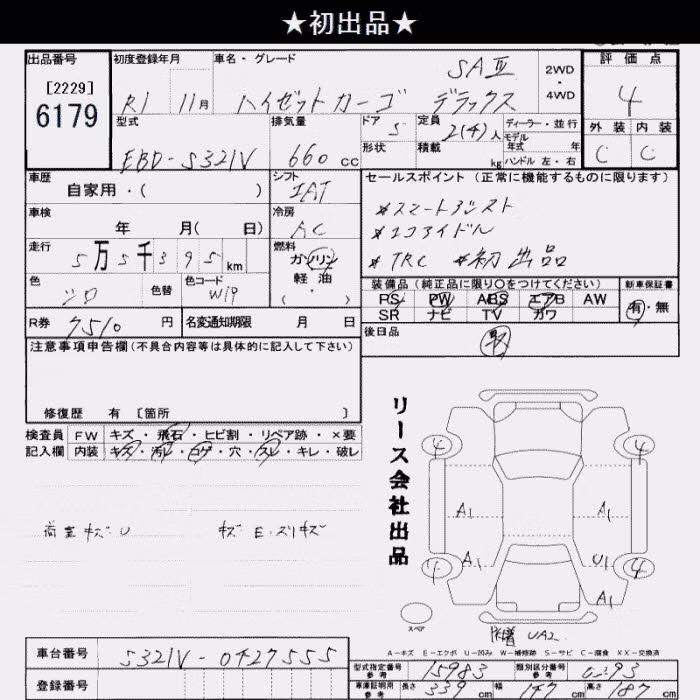 ★初出品★
出品番号 初度登録年月 車名・グレード 評価点
[2229]
6179
R1 11月 ハイゼットカーゴ SAⅢ デラックス
2WD
・
4WD
4
型式 排気量 ドア 5 定員 2(4)人 ディーラー・並行
モデル
年式 年
外装 内装
C C
EBD-S321V 660 cc 形状 積載 kg ハンドル 左・右
車歴 シフト セールスポイント(正常に機能するものに限ります)
自家用・( ) IAT
*スマートアシスト
車検 冷房
年 月( 日) AC
*エコアイドル
走行 燃料
5万5千395km ガソリン
軽油
( ・ )
*TRC *初出品
色 色替 色コード
シロ W19
装備品(純正品に限り○をつけてください) 新車保証書
PS PW ABS エアB AW 有・無
SR ナビ TV カワ
R券 7510 円 名変通知期限 月 日
後日品
取
注意事項申告欄(不具合内容等は具体的に記入して下さい)
修復歴 有 [箇所 ]
検査員 FW キズ・飛石・ヒビ割・リペア跡・×要
記入欄 内装 キズ・汚レ・コゲ・穴・スレ・キレ・破レ
リース会社出品
荷室キズU キズ E・スリキズ
4 4
A1 A1
A1 U1
4 4
A1
スペア
UA2
A-キズ E-エクボ U-凹み W-補修跡 S-サビ C-腐食 XX-交換済
車台番号 S321V-0427555
型式指定番号 参考 15983 類別区分番号 参考
登録番号
車庫証明用 参考 長さ 339cm 幅 147cm 高さ 187cm